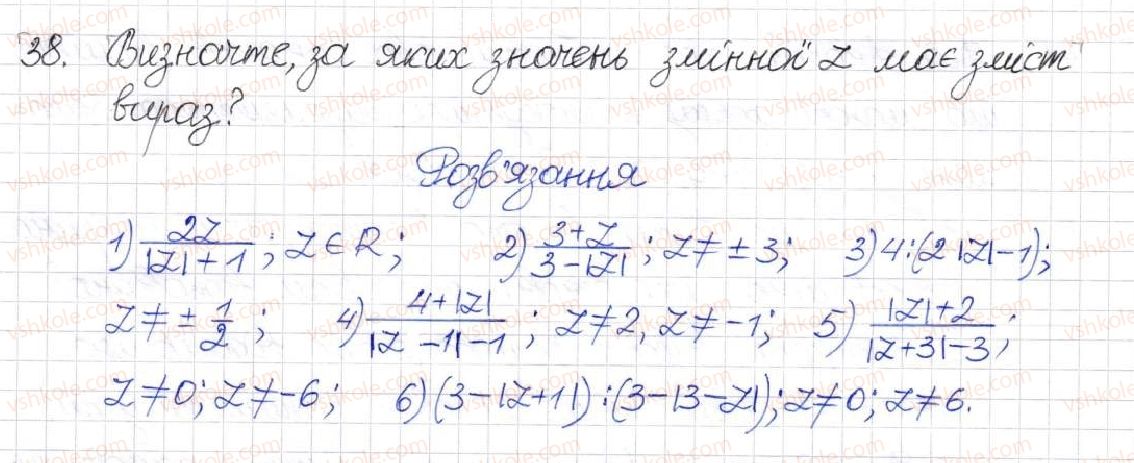 38. Визначте, за яких значень змінної z має зміст
вираз?
Розв'язання
1) 2z / (|z| + 1); z ∈ R; 2) (3 + z) / (3 - |z|); z ≠ ± 3; 3) 4 : (2|z| - 1);
z ≠ ± 1/2; 4) (4 + |z|) / (|z - 1| - 1); z ≠ 2, z ≠ -1; 5) (|z| + 2) / (|z + 3| - 3);
z ≠ 0; z ≠ -6; 6) (3 - |z + 1|) : (3 - |3 - z|); z ≠ 0; z ≠ 6.